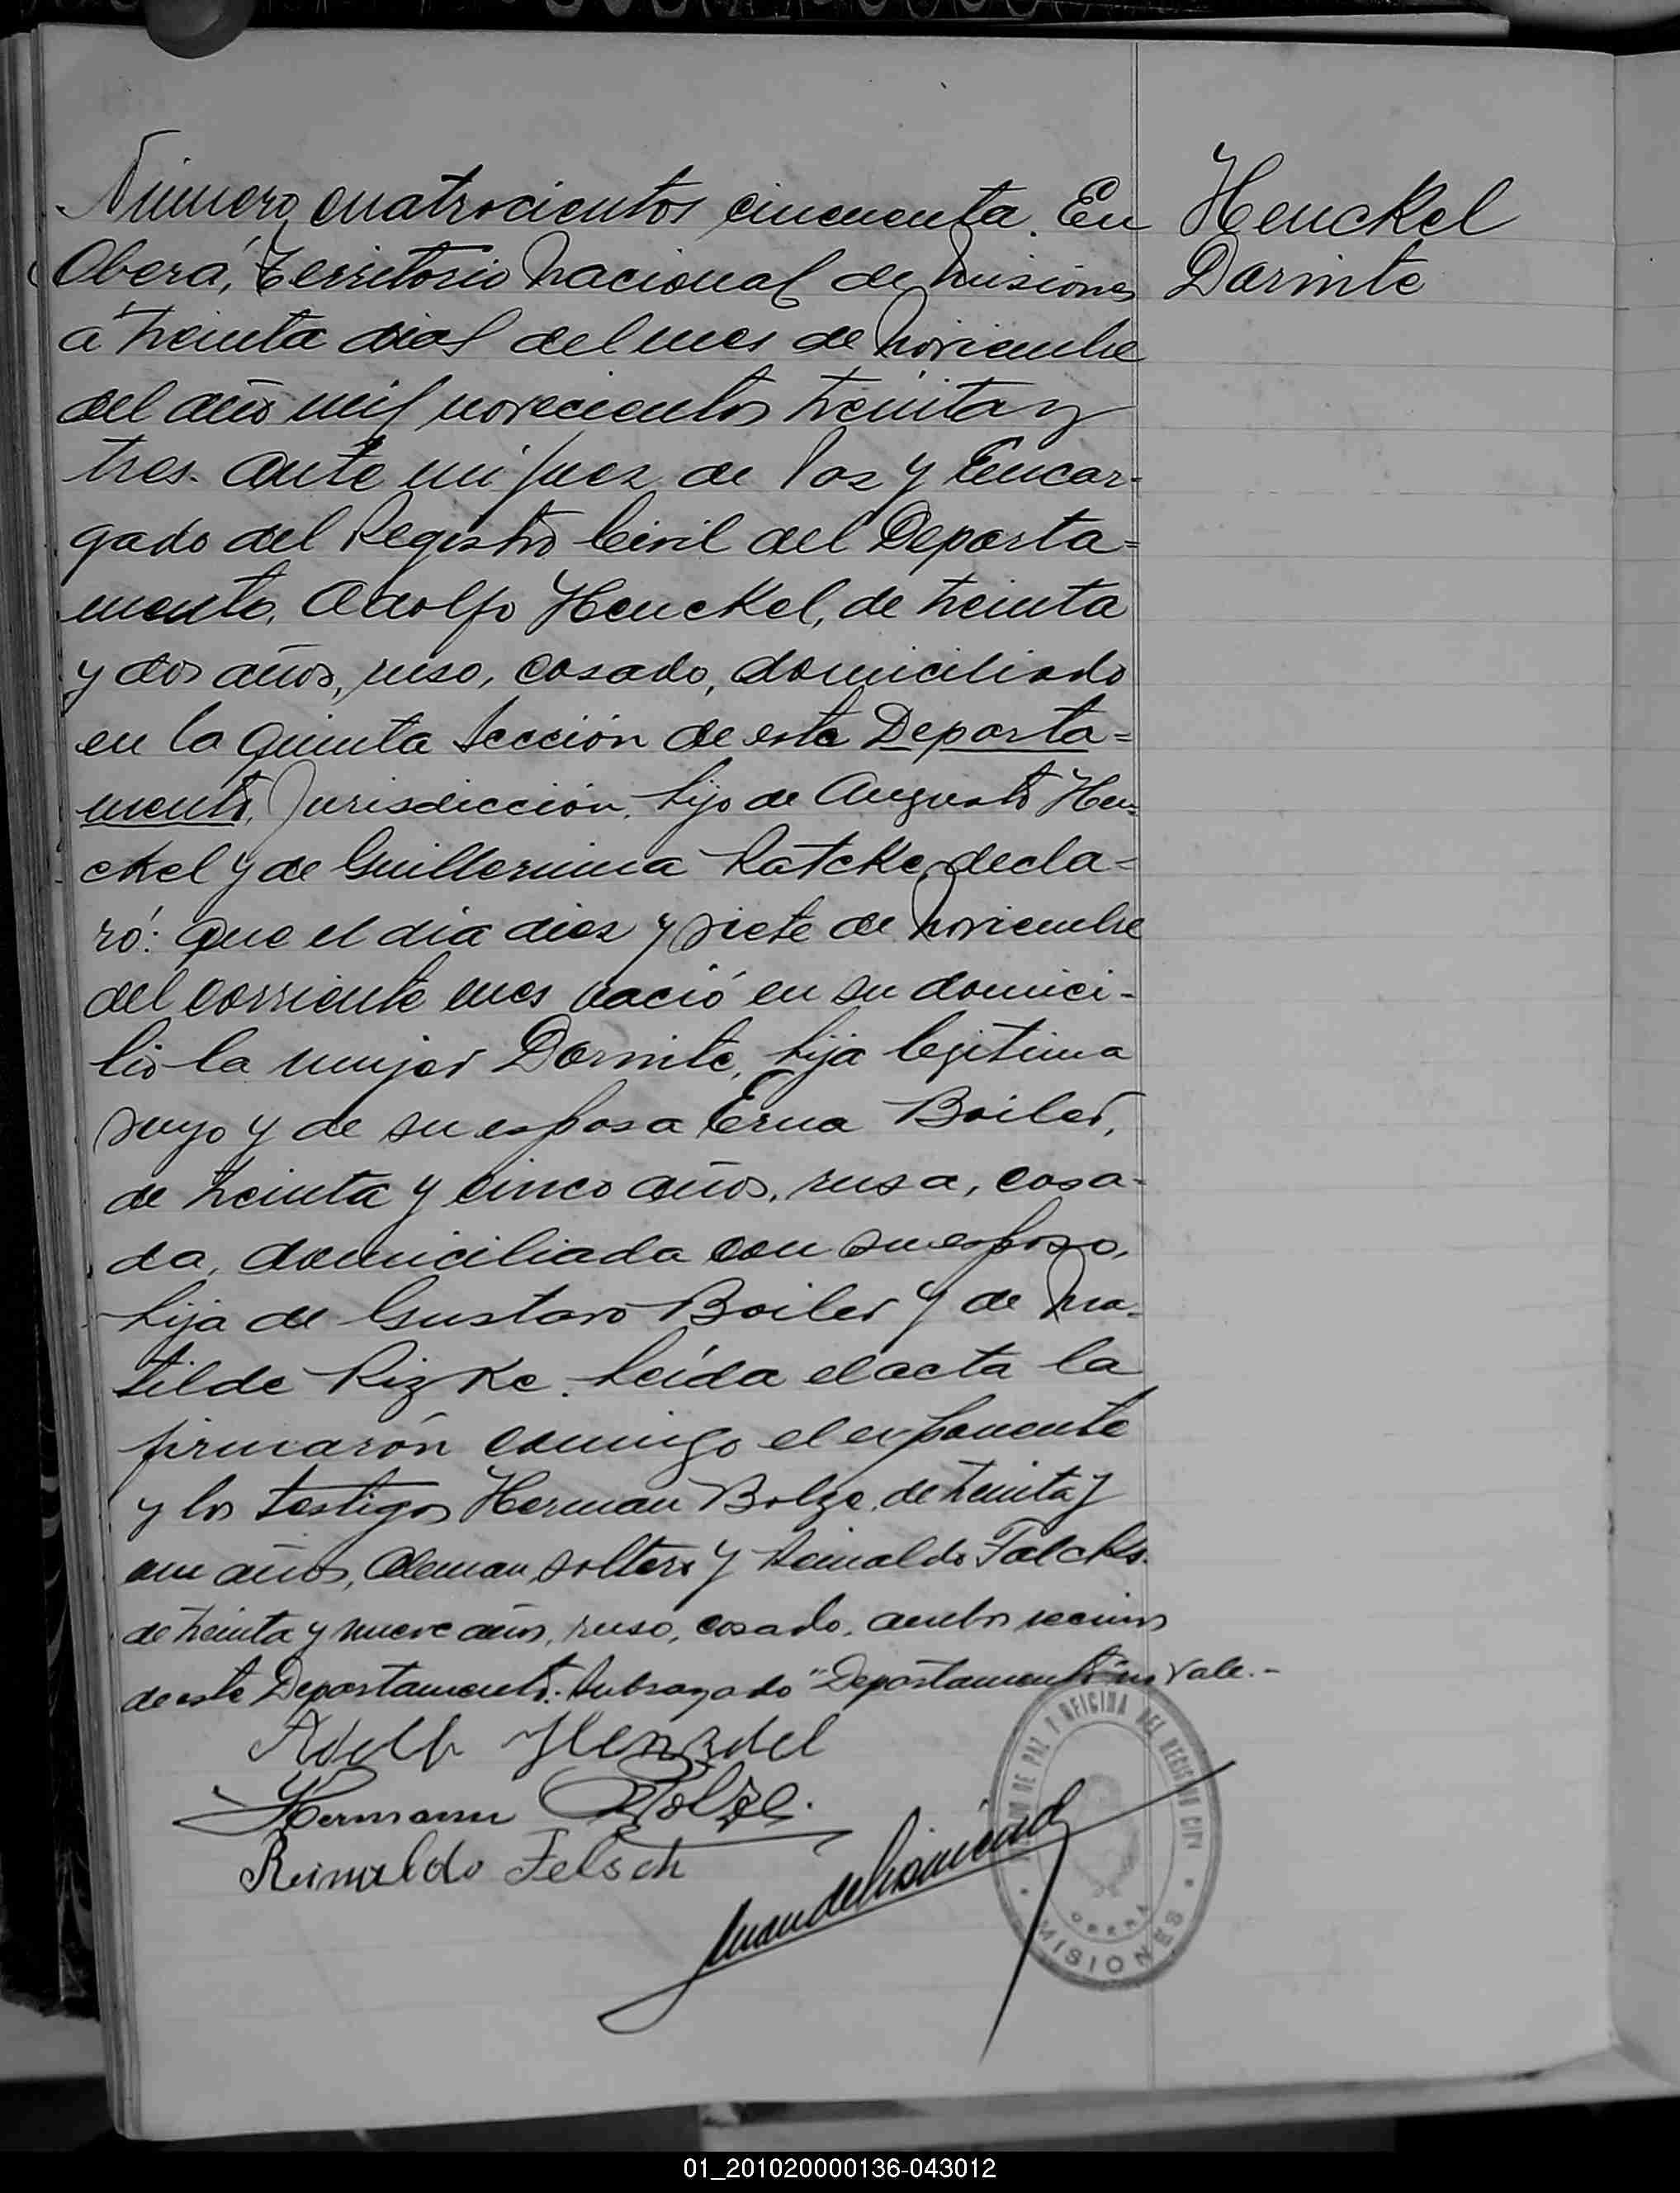 Número cuatrocientos cincuenta. En
Oberá, Territorio Nacional de Misiones
a treinta dias del mes de Noviembre
del año mil novecientos treinta y
tres. Ante mi Juez de Paz y Encar-
gado del Registro Civil del Departa=
mento, Adolfo Henckel, de treinta
y dos años, ruso, casado, domiciliado
en la quinta Sección de este Departa=
mento, Jurisdicción, hijo de Augusto Hen-
ckel y de Guillermina Ratcke, decla=
ró: Que el dia diez y siete de Noviembre
del corriente mes nació en su domici-
lio la mujer Dornite, hija legitima
suyo y de su esposa Erna Boiler,
de treinta y cinco años, rusa, casa-
da, domiciliada con su esposo,
hija de Gustavo Boiler y de Ma-
tilde Rizke. Leída el acta la
firmarón conmigo el exponente
y los testigos Herman Bolze, de treinta y
un años, Aleman, soltero y Reinaldo Falchs.
de treinta y nueve años, ruso, casado, ambos vecinos
de este Departamento. Subrayado "Departamento" no vale.-
Henckel
Dornite
Adolf Henckel
Hermann Bolze.
Reinaldo Felsch
JUZGADO DE PAZ Y OFICINA DEL REGISTRO CIVIL
OBERA
MISIONES
01_201020000136-043012